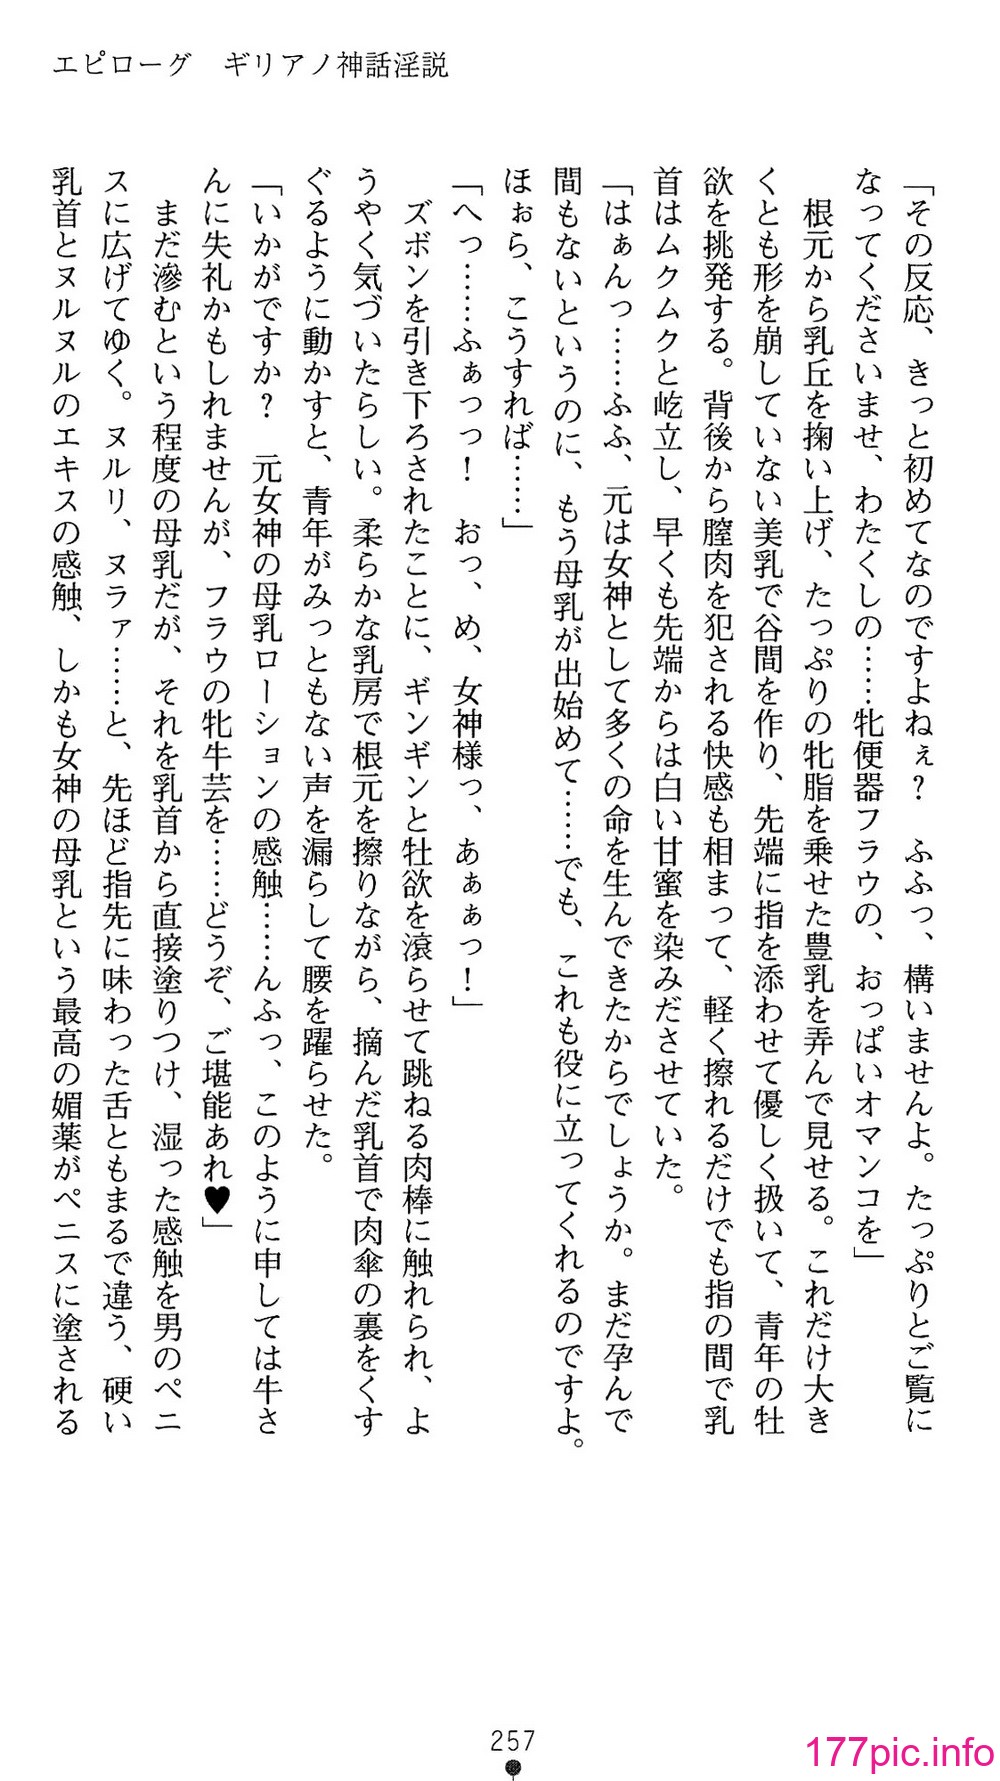 エピローグ　ギリアノ神話淫説
「その反応、きっと初めてなのですよねぇ？　ふふっ、構いませんよ。たっぷりとご覧に
なってくださいませ、わたくしの……牝便器フラウの、おっぱいオマンコを」
　根元から乳丘を掬い上げ、たっぷりの牝脂を乗せた豊乳を弄んで見せる。これだけ大き
くとも形を崩していない美乳で谷間を作り、先端に指を添わせて優しく扱いて、青年の牡
欲を挑発する。背後から膣肉を犯される快感も相まって、軽く擦れるだけでも指の間で乳
首はムクムクと屹立し、早くも先端からは白い甘蜜を染みださせていた。
「はぁんっ……ふふ、元は女神として多くの命を生んできたからでしょうか。まだ孕んで
間もないというのに、もう母乳が出始めて……でも、これも役に立ってくれるのですよ。
ほぉら、こうすれば……」
「へっ……ふぁっっ！　おっ、め、女神様っ、あぁぁっ！」
　ズボンを引き下ろされたことに、ギンギンと牡欲を滾らせて跳ねる肉棒に触れられ、よ
うやく気づいたらしい。柔らかな乳房で根元を擦りながら、摘んだ乳首で肉傘の裏をくす
ぐるように動かすと、青年がみっともない声を漏らして腰を躍らせた。
「いかがですか？　元女神の母乳ローションの感触……んふっ、このように申しては牛さ
んに失礼かもしれませんが、フラウの牝牛芸を……どうぞ、ご堪能あれ♥」
　まだ滲むという程度の母乳だが、それを乳首から直接塗りつけ、湿った感触を男のペニ
スに広げてゆく。ヌルリ、ヌラァ……と、先ほど指先に味わった舌ともまるで違う、硬い
乳首とヌルヌルのエキスの感触、しかも女神の母乳という最高の媚薬がペニスに塗される
257
177pic.info